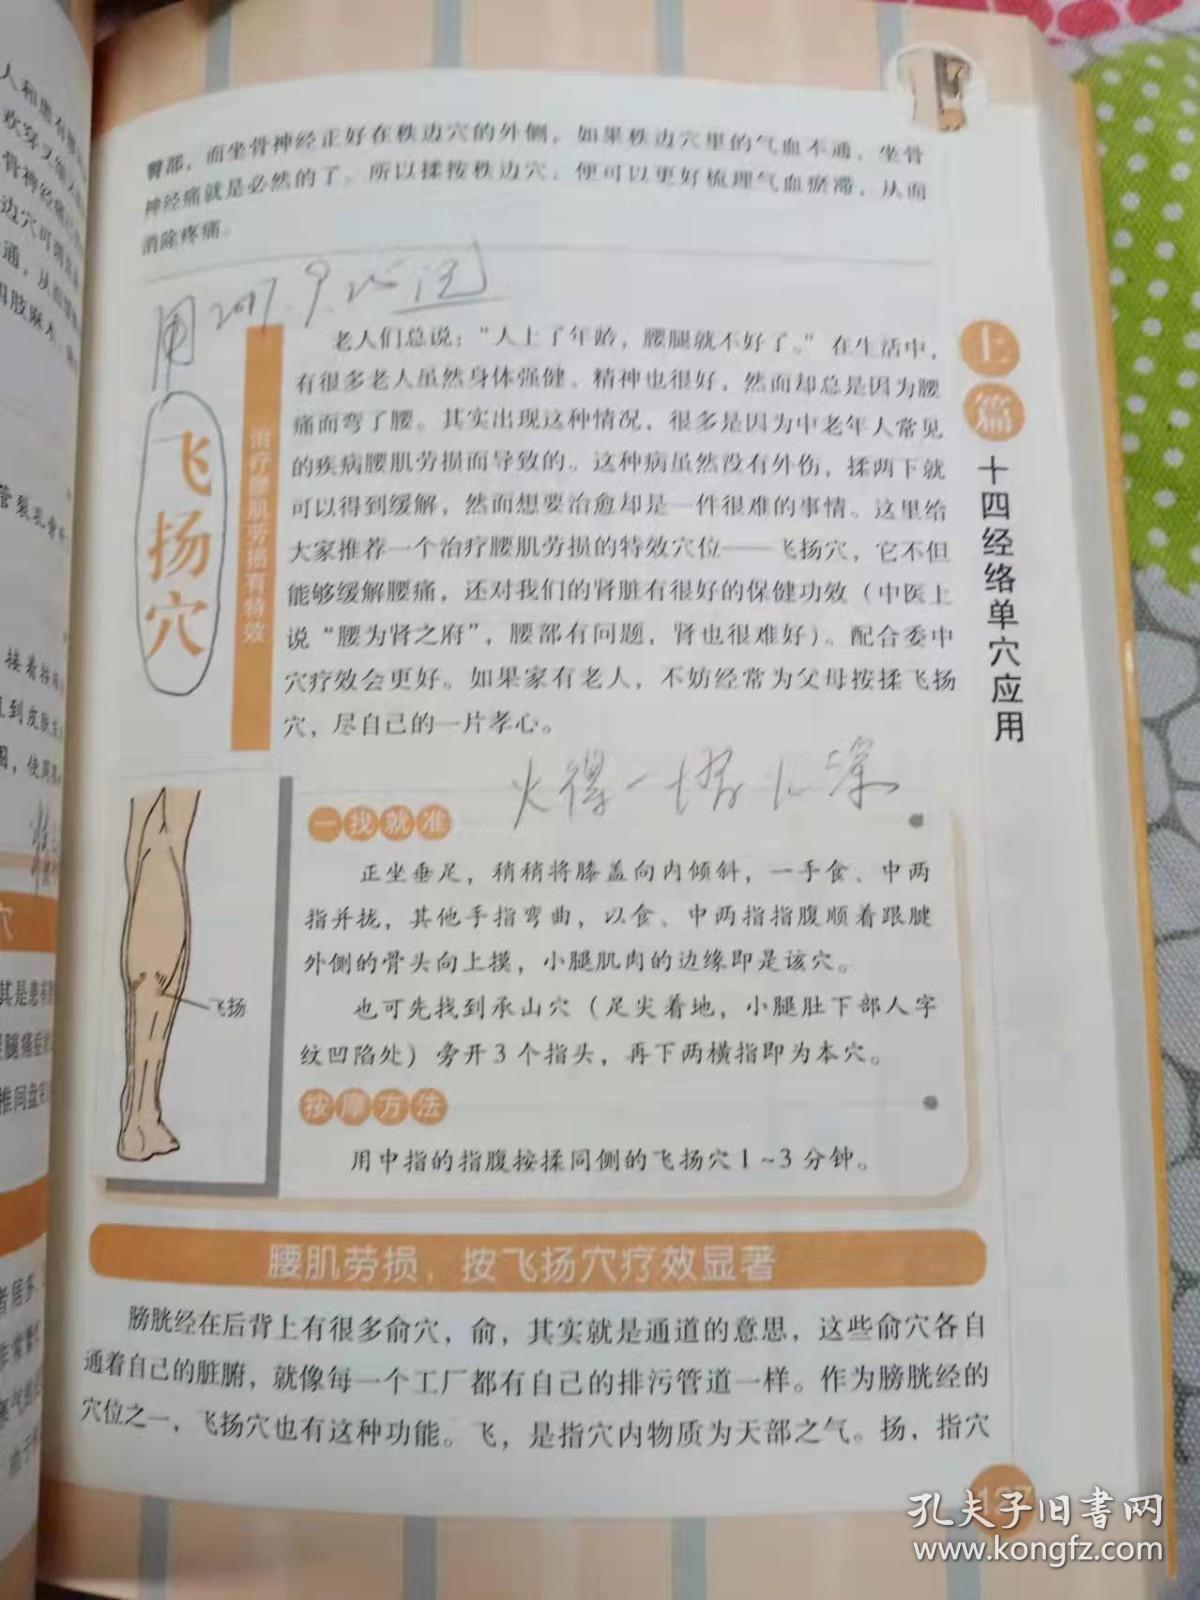 臀部，而坐骨神经正好在秩边穴的外侧，如果秩边穴里的气血不通，坐骨
神经痛就是必然的了。所以揉按秩边穴，便可以更好梳理气血瘀滞，从而
消除疼痛。
用2017.9.25
飞扬穴
治疗腰肌劳损有特效
老人们总说：“人上了年龄，腰腿就不好了。”在生活中，
有很多老人虽然身体强健，精神也很好，然而却总是因为腰
痛而弯了腰。其实出现这种情况，很多是因为中老年人常见
的疾病腰肌劳损而导致的。这种病虽然没有外伤，揉两下就
可以得到缓解，然而想要治愈却是一件很难的事情。这里给
大家推荐一个治疗腰肌劳损的特效穴位——飞扬穴，它不但
能够缓解腰痛，还对我们的肾脏有很好的保健功效（中医上
说“腰为肾之府”，腰部有问题，肾也很难好）。配合委中
穴疗效会更好。如果家有老人，不妨经常为父母按揉飞扬
穴，尽自己的一片孝心。
一找就准
正坐垂足，稍稍将膝盖向内倾斜，一手食、中两
指并拢，其他手指弯曲，以食、中两指指腹顺着跟腱
外侧的骨头向上摸，小腿肌肉的边缘即是该穴。
也可先找到承山穴（足尖着地，小腿肚下部人字
纹凹陷处）旁开3个指头，再下两横指即为本穴。
按摩方法
用中指的指腹按揉同侧的飞扬穴1~3分钟。
飞扬
腰肌劳损，按飞扬穴疗效显著
膀胱经在后背上有很多俞穴，俞，其实就是通道的意思，这些俞穴各自
通着自己的脏腑，就像每一个工厂都有自己的排污管道一样。作为膀胱经的
穴位之一，飞扬穴也有这种功能。飞，是指穴内物质为天部之气。扬，指穴
上篇
十四经络单穴应用
孔夫子旧书网
www.kongfz.com